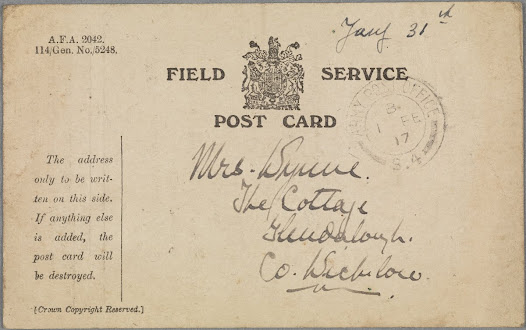 A.F.A. 2042.
114/Gen. No./5248.
Jany 31st
FIELD SERVICE
POST CARD
ARMY POST OFFICE
1 FE
17
S.4
The address
only to be writ-
ten on this side.
If anything else
is added, the
post card will
be destroyed.
[Crown Copyright Reserved.]
Mrs. Wynne.
The Cottage
Glendalough.
Co. Wicklow.